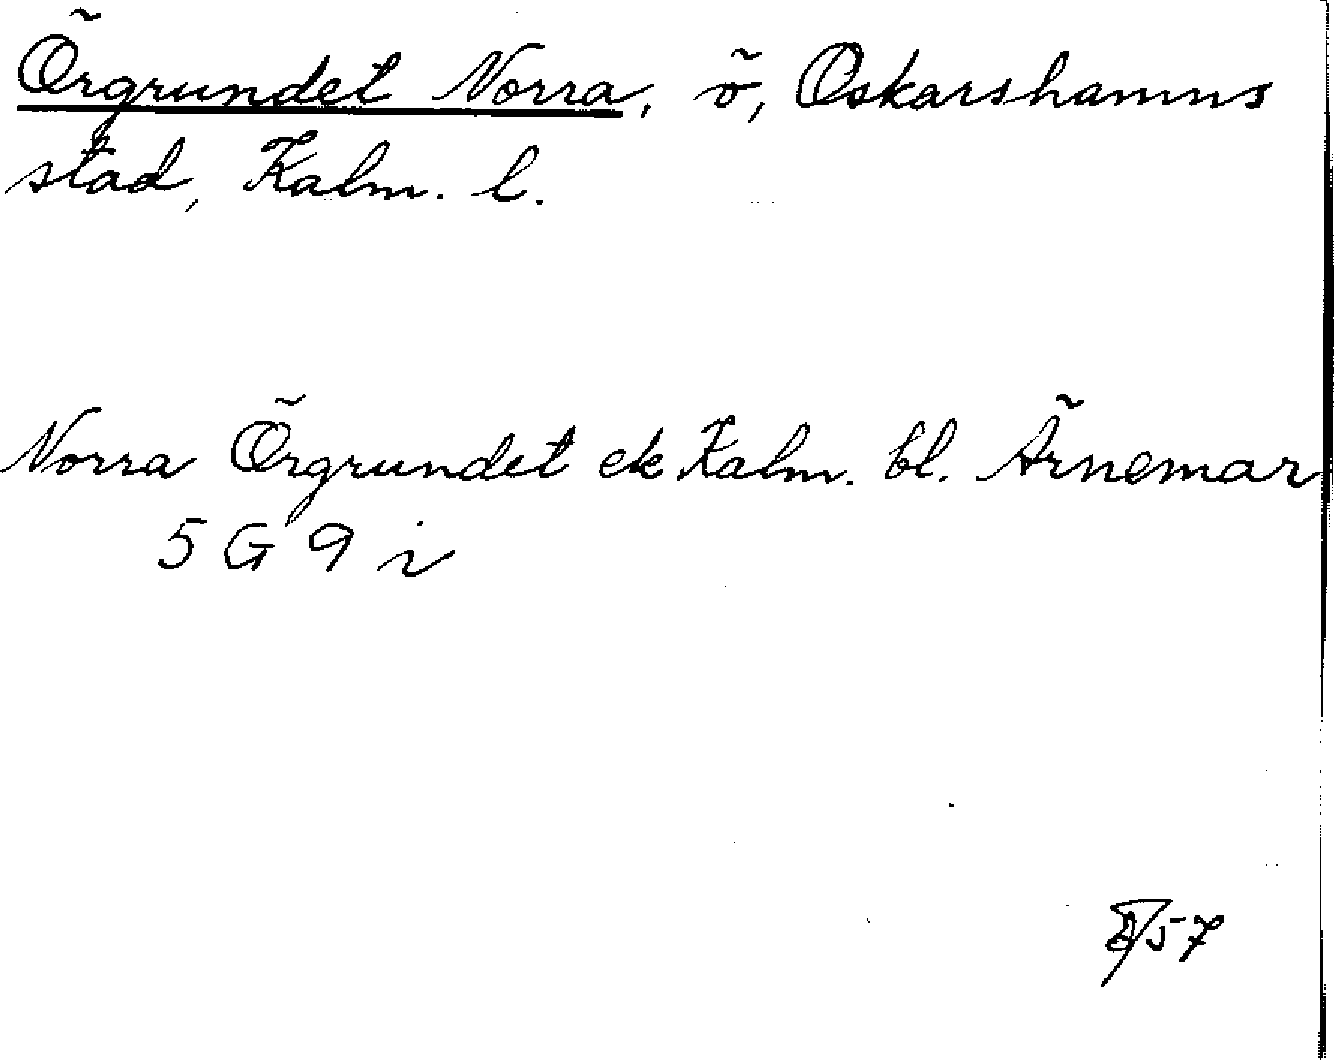 Örgrundet Norra, ö, Oskarshamns
stad, Kalm. l.
Norra Örgrundet ek Kalm. bl. Ärnemar
5 G 9 i
57